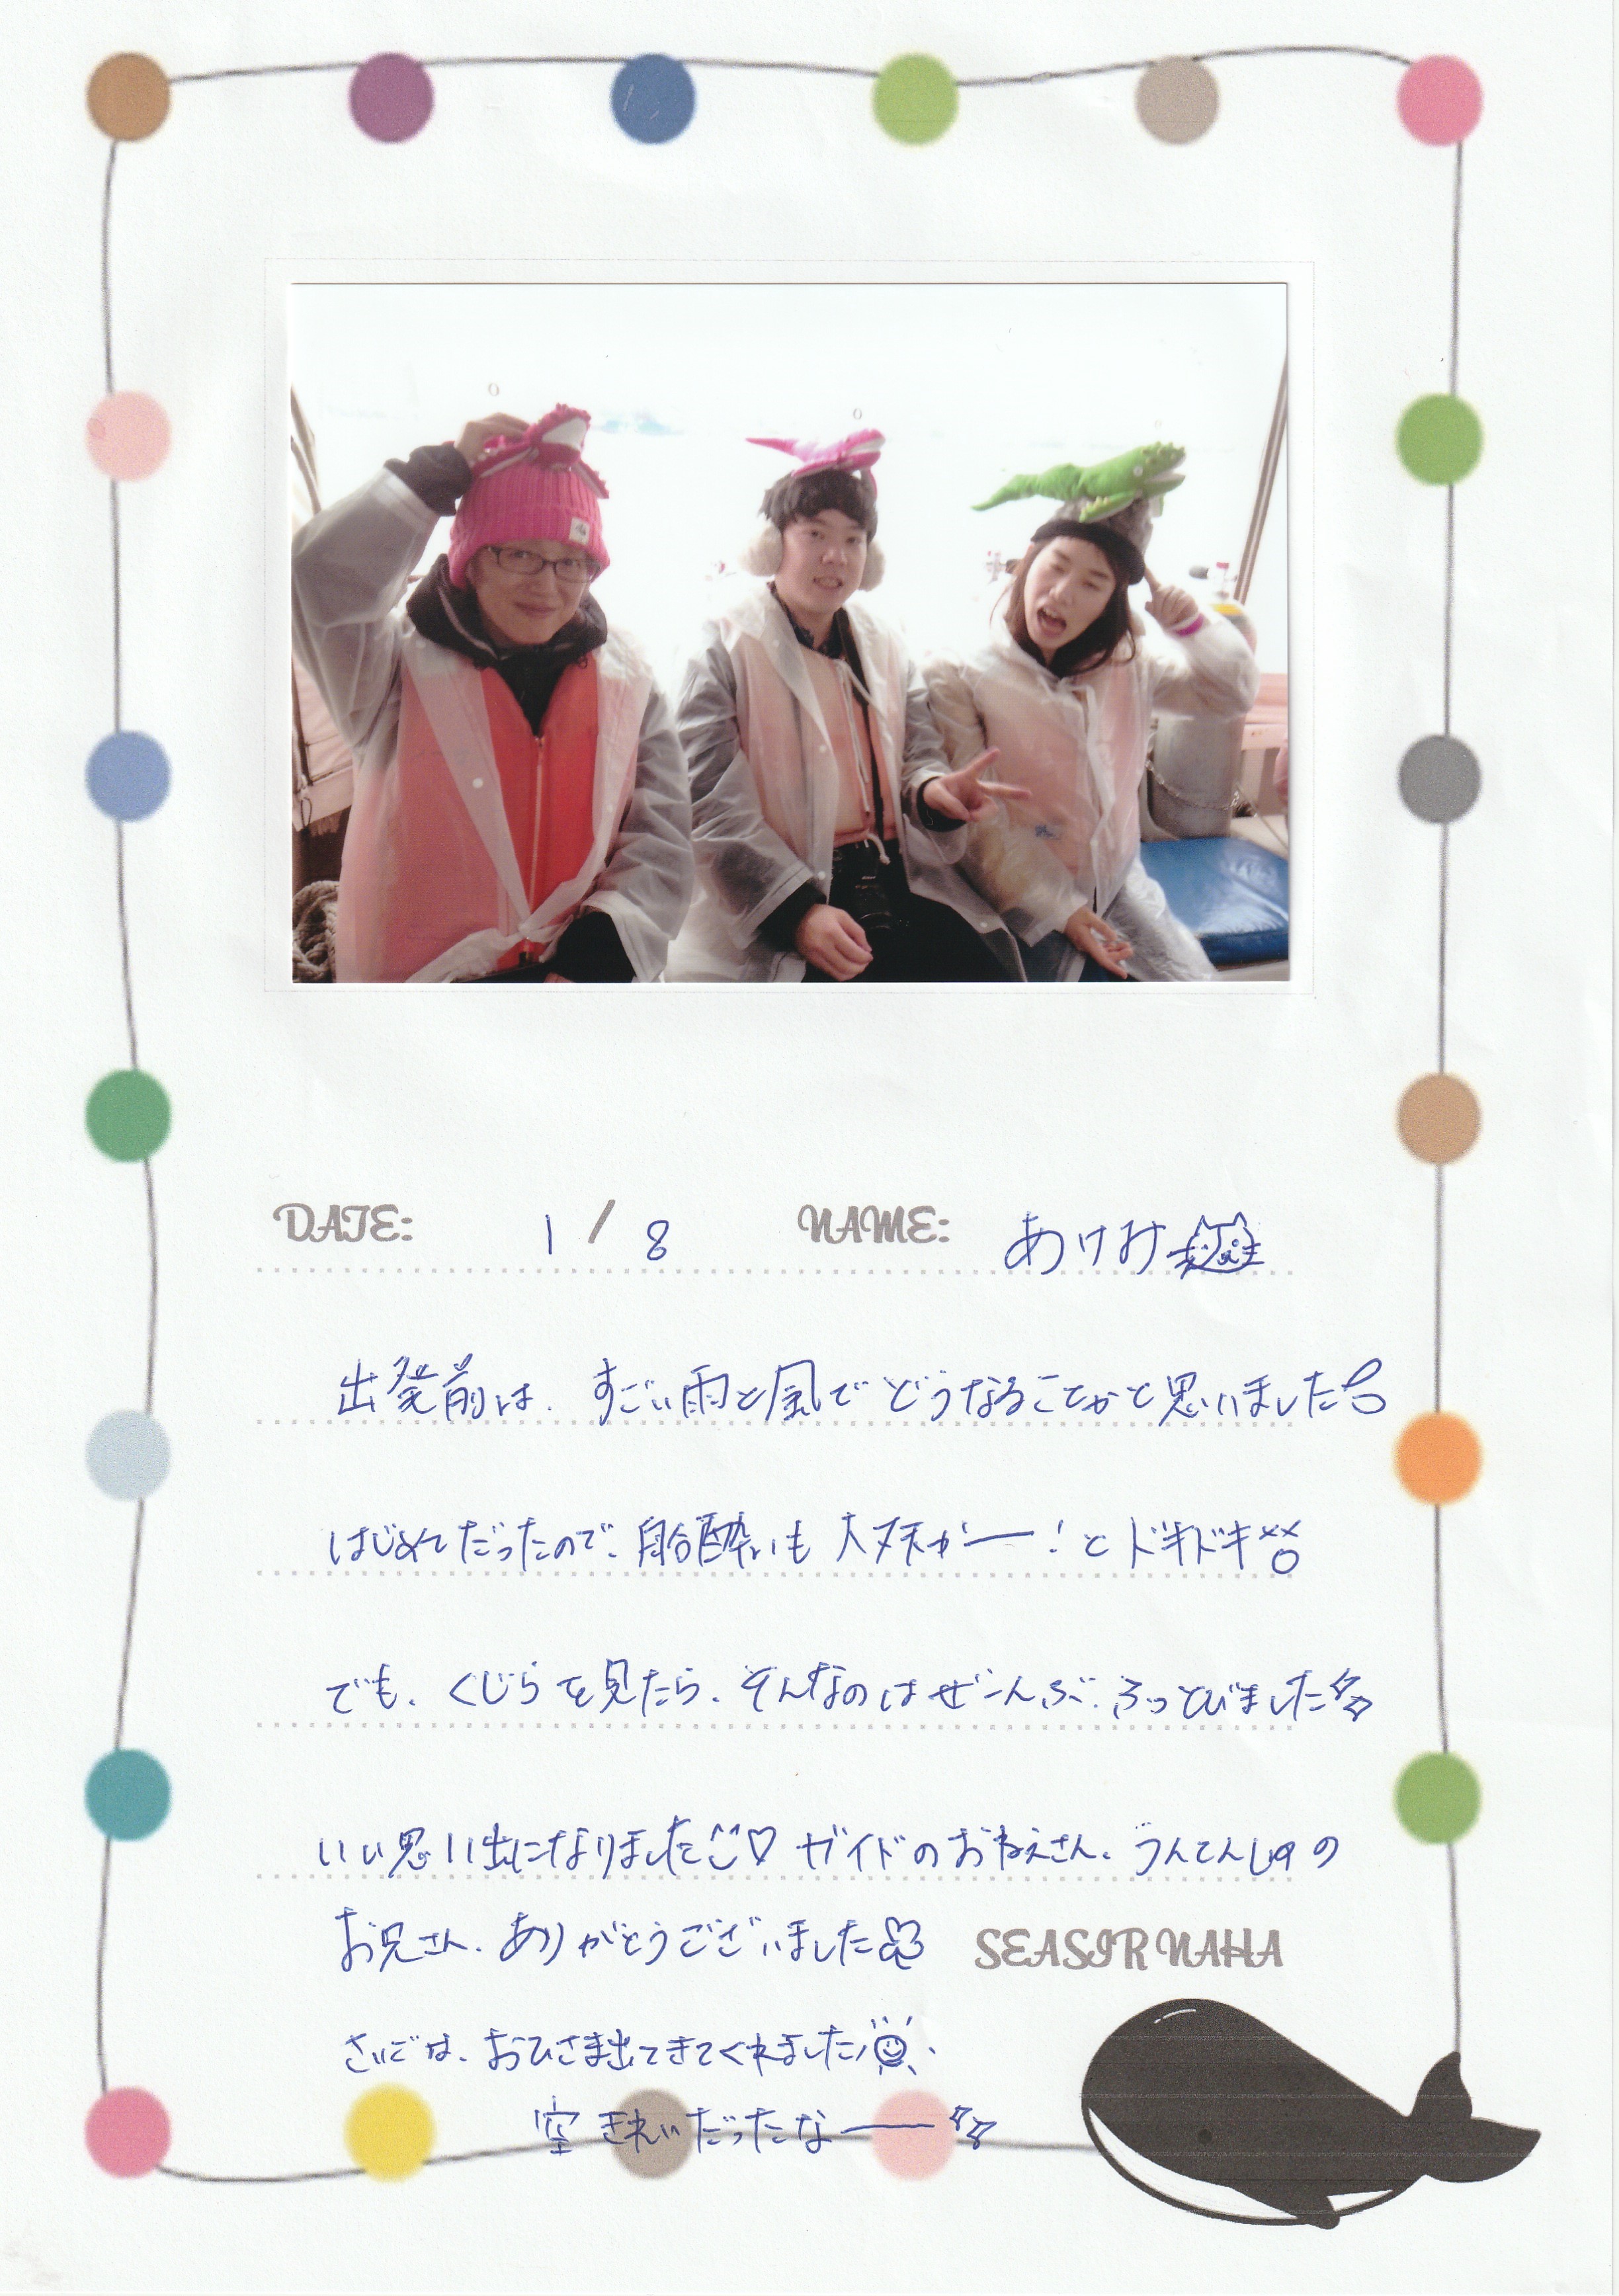 DATE: 1 / 8 NAME: あけみ
出発前は、すごい雨と風でどうなることかと思いました
はじめてだったので、船酔いも大丈夫かー！とドキドキ
でも、くじらを見たら、そんなのはぜーんぶ、ふっとびました
いい思い出になりました♡ ガイドのおねえさん、うんてんしゅの
お兄さん、ありがとうございました
SEASIR NAHA
さいごは、おひさま出てきてくれました
空きれいだったなー